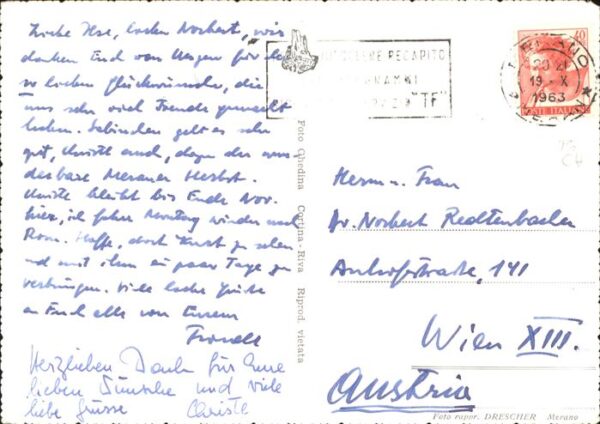 Liebe Ilse, lieber Norbert, wir
danken Euch von Herzen für die
so lieben Glückwünsche, die
uns sehr viel Freude gemacht
haben. geht es sehr
gut, Christl auch, dazu der wun-
derbare Meraner Herbst.
Christe bleibt bis Ende Nov.
hier, ich fahre Montag wieder nach
Rom. Hoffe, dort Kurt zu sehen
und mit ihm ein paar Tage zu
verbringen. Viele liebe Grüße
an Euch alle von Eurem
Herzlichen Dank für Eure
lieben Wünsche und viele
liebe Grüsse Christe
Foto Ghedina Cortina - Riva Riprod. vietata
RECAPITO
"TF"
MERANO
20-21
19-X
1963
40
POSTE ITALIANE
Herrn u. Frau
Dr. Norbert Redtenbacher
Anhofstraße, 141
Wien XIII.
Austria
Foto ropor. DRESCHER Merano